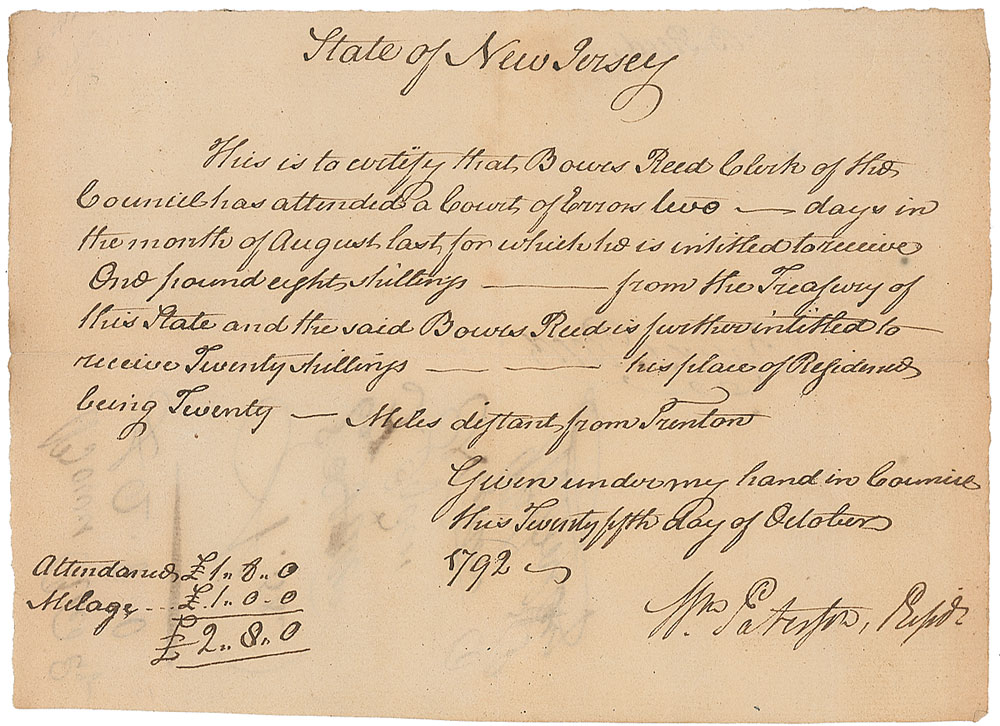 State of New Jersey
This is to certify that Bowes Reed Clerk of the
Council has attended a Court of Errors two — days in
the month of August last for which he is intitled to receive
One pound eight shillings ——— from the Treasury of
this State and the said Bowes Reed is further intitled to
receive Twenty shillings — — — his place of Residence
being Twenty — Miles distant from Trenton
Given under my hand in Council
this Twenty fifth Day of October
1792 —
Attendance £1 „ 8 „ 0
Milage --- £ 1 „ 0 - 0
£ 2 „ 8 „ 0
Wm Paterson, Presidt